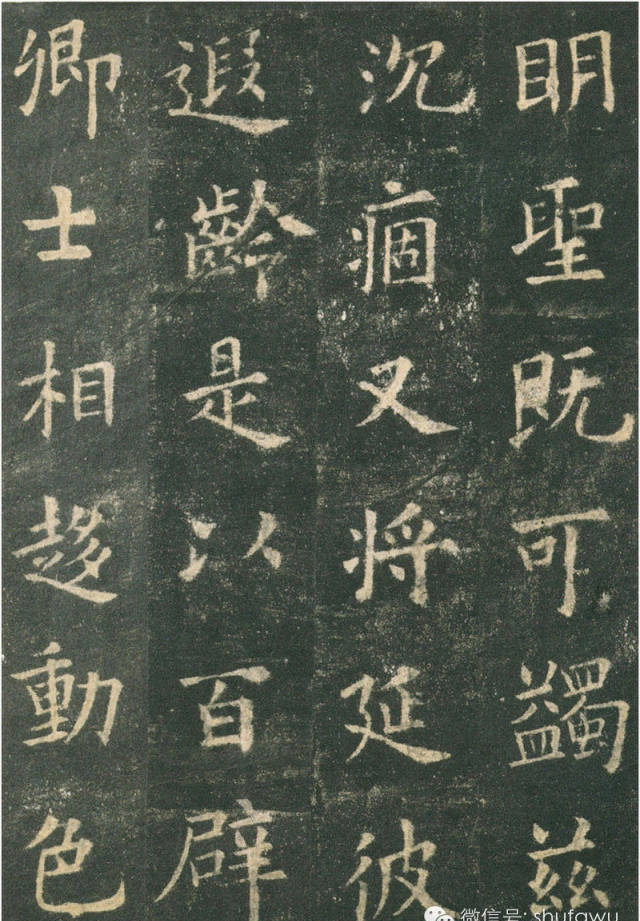 明聖既可蠲兹
沉痼又将延彼
遐齡是以百辟
卿士相趍動色
微信号: shufawu